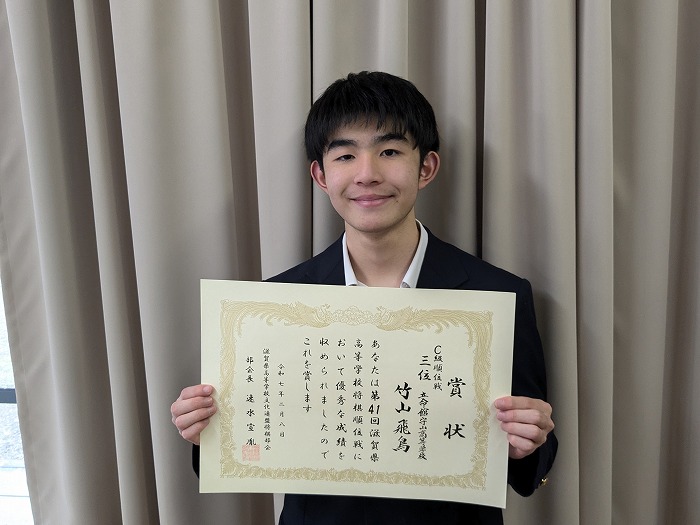 賞状
C級順位戦
三位 立命館守山高等学校
竹山飛鳥
あなたは第41回滋賀県
高等学校将棋順位戦に
おいて優秀な成績を
収められましたので
これを賞します
滋賀県高等学校文化連盟将棋部会
部会長 速水宣胤